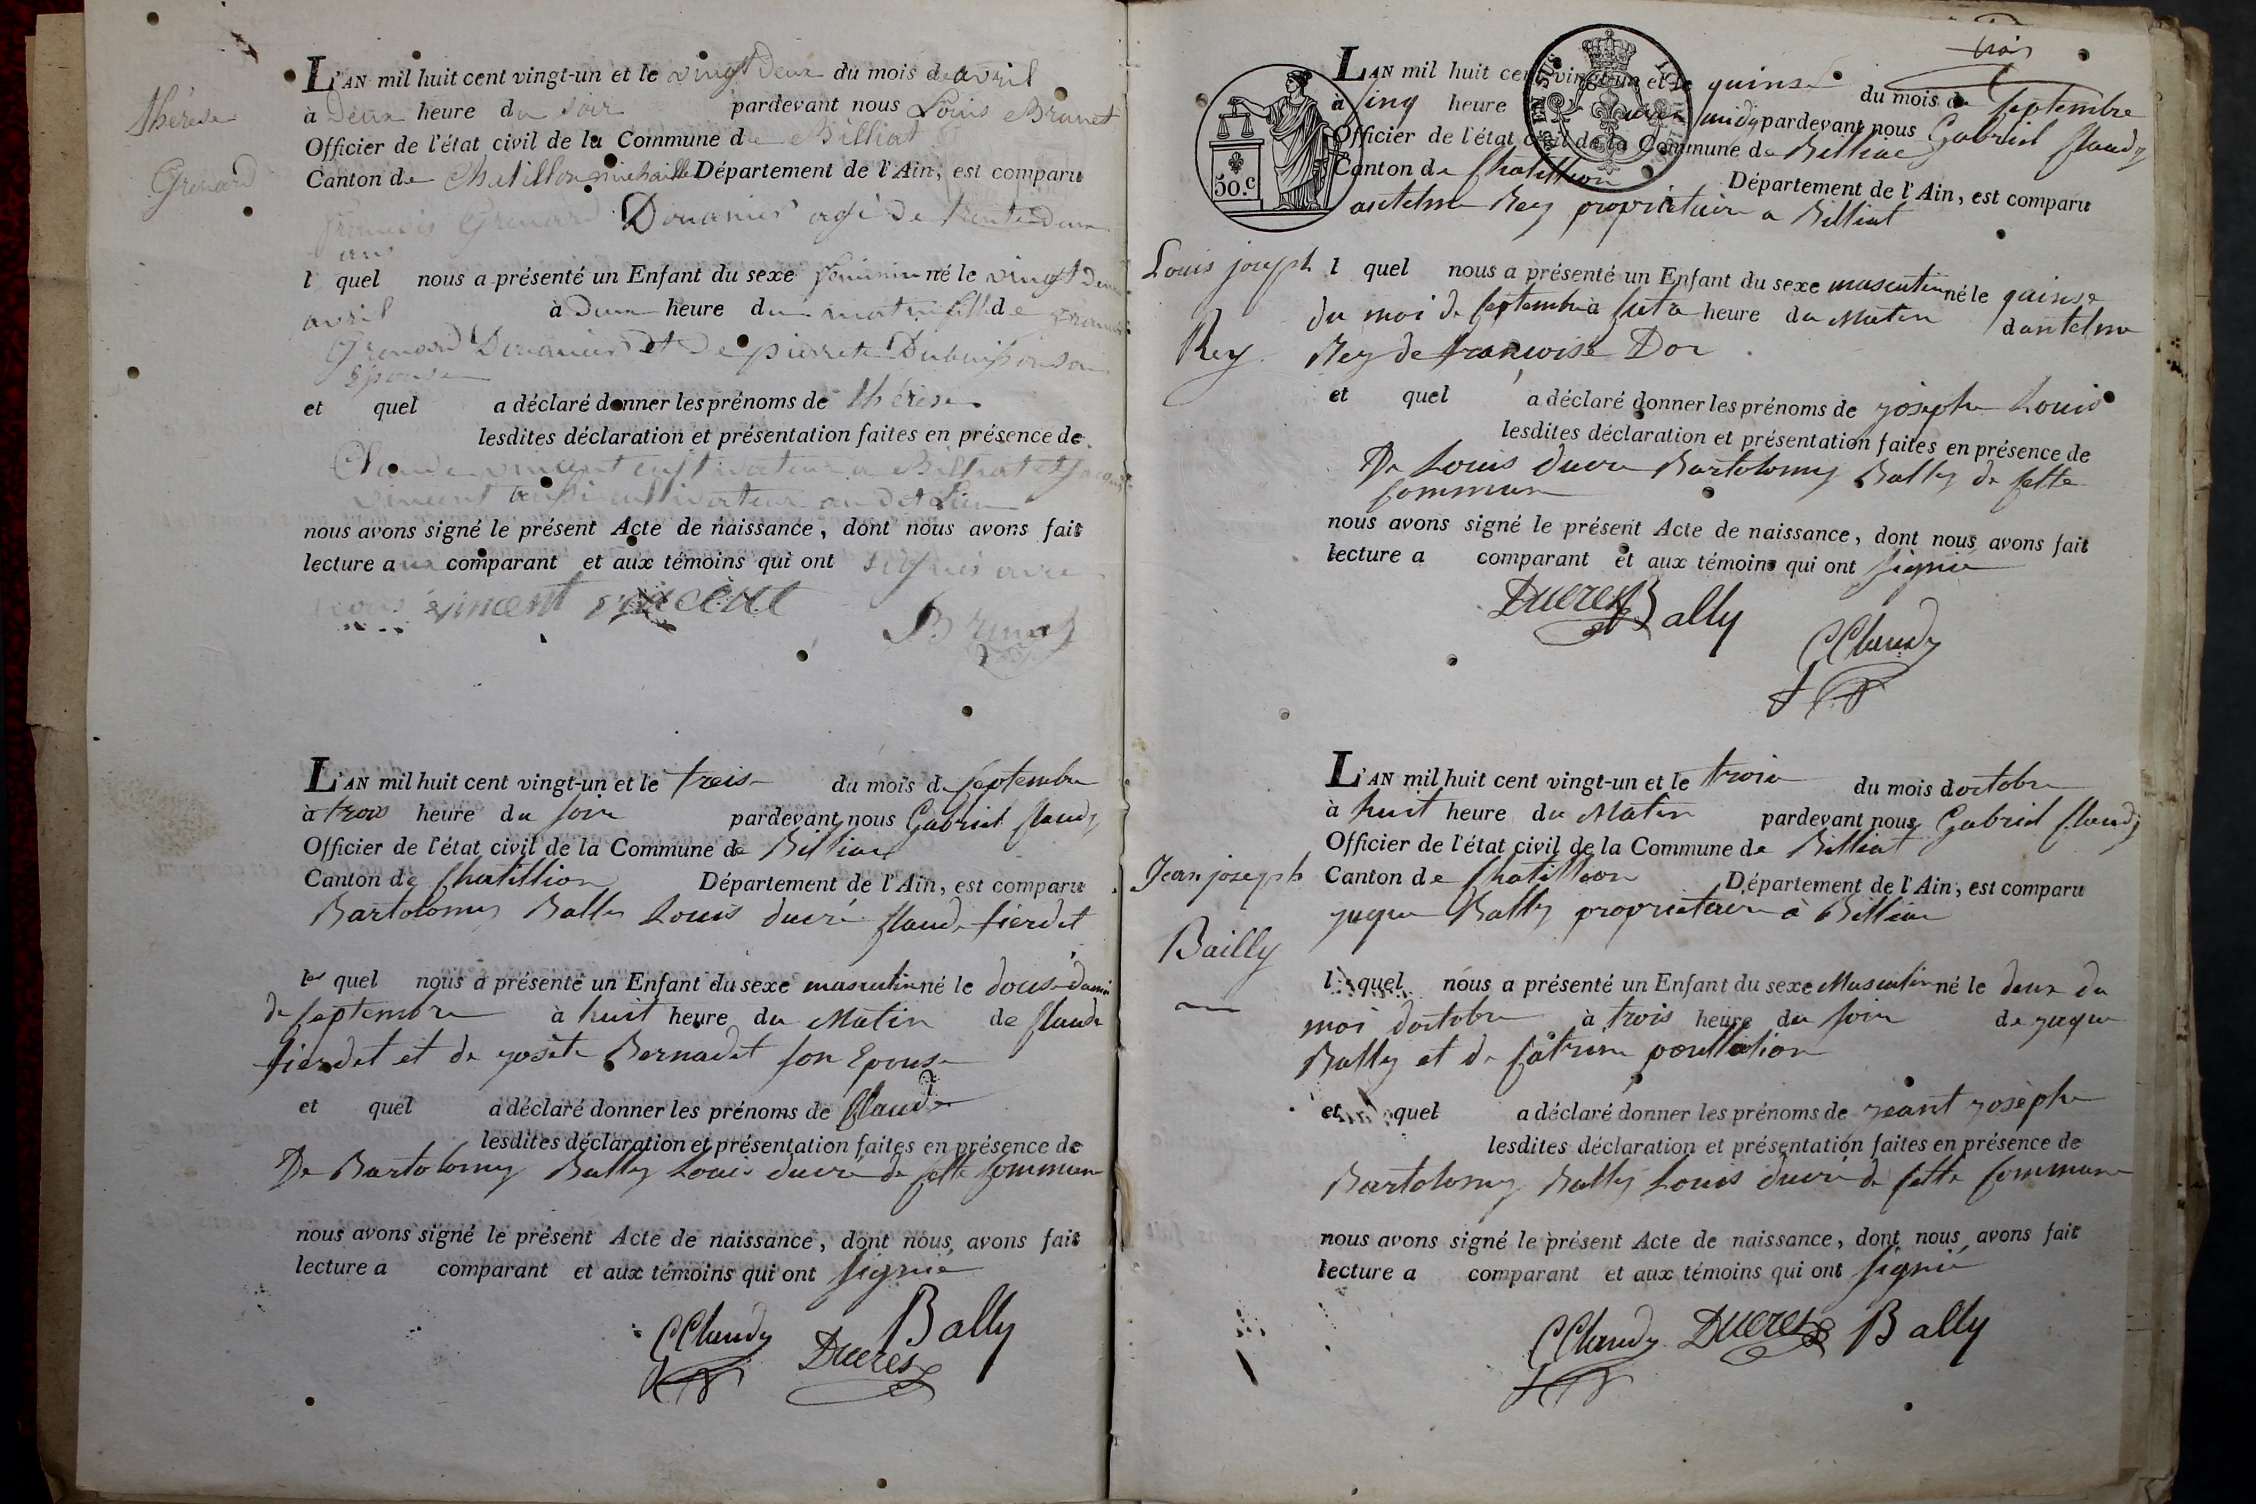 L'AN mil huit cent vingt-un et le vingt deux du mois de avril
à deux heure du soir pardevant nous Louis Brunet
Officier de l'état civil de la Commune de Billiat
Canton de Chatillon michaille Département de l'Ain, est comparu
Thérèse
Grenard
françois Grenard Douanier agé de trente deux
ans
l quel nous a présenté un Enfant du sexe feminin né le vingt deux
avril à deux heure du matin fille de françois
Grenard Douanier et de pierrette Dubuisson son
Epouse
et quel a déclaré donner les prénoms de thérèse
lesdites déclaration et présentation faites en présence de
Claude vincent cultivateur a Billiat et
vincent aussi cultivateur au dit Lieu
nous avons signé le présent Acte de naissance, dont nous avons fait
lecture aux comparant et aux témoins qui ont signés avec
nous vincent vincent
Brunet
L'AN mil huit cent vingt-un et le treis du mois de septembre
à trois heure du soir pardevant nous Gabriel Claudy
Officier de l'état civil de la Commune de Billiat
Canton de Chatillion Département de l'Ain, est comparu
Bartolomy Bally Louis ducré Claude fierdet
les quel nous a présenté un Enfant du sexe masculin né le
de septembre à huit heure du Matin de Claude
fierdet et de Bernadet son Epouse
et quel a déclaré donner les prénoms de Claude
lesdites déclaration et présentation faites en présence de
De Bartolomy Bally Louis ducré de sette Commune
nous avons signé le présent Acte de naissance, dont nous avons fait
lecture a comparant et aux témoins qui ont signié
CClaudy Ducres Bally
trois
50.C
L'AN mil huit cent vingt-un et le quinse du mois de septembre
à sinq heure pardevant nous Gabriel Claudy
Officier de l'état civil de la Commune de Billiac
Canton de Chatillion Département de l'Ain, est comparu
antelme Rey propriétaire a Billiat
Louis joseph
Rey
l quel nous a présenté un Enfant du sexe masculin né le quinse
du moi de septembre à heure du Matin dantelme
Rey de françoise Dor
et quel a déclaré donner les prénoms de joseph Louis
lesdites déclaration et présentation faites en présence de
De Louis ducre Bartolomy Bally de sette
Commune
nous avons signé le présent Acte de naissance, dont nous avons fait
lecture a comparant et aux témoins qui ont signié
Ducres Bally
CClaudy
L'AN mil huit cent vingt-un et le trois du mois doctobre
à huit heure du Matin pardevant nous Gabriel Claudy
Officier de l'état civil de la Commune de Billiat
Canton de Chatillion Département de l'Ain, est comparu
Jean joseph
Bailly
jaque Bally propriétaire à Billiat
l quel nous a présenté un Enfant du sexe Masculin né le deux du
moi doctobre à trois heure du soir de jaque
Bally et de
et quel a déclaré donner les prénoms de jeant joseph
lesdites déclaration et présentation faites en présence de
Bartolomy Bally Louis ducré de sette Commune
nous avons signé le présent Acte de naissance, dont nous avons fait
lecture a comparant et aux témoins qui ont signié
CClaudy Ducres Bally